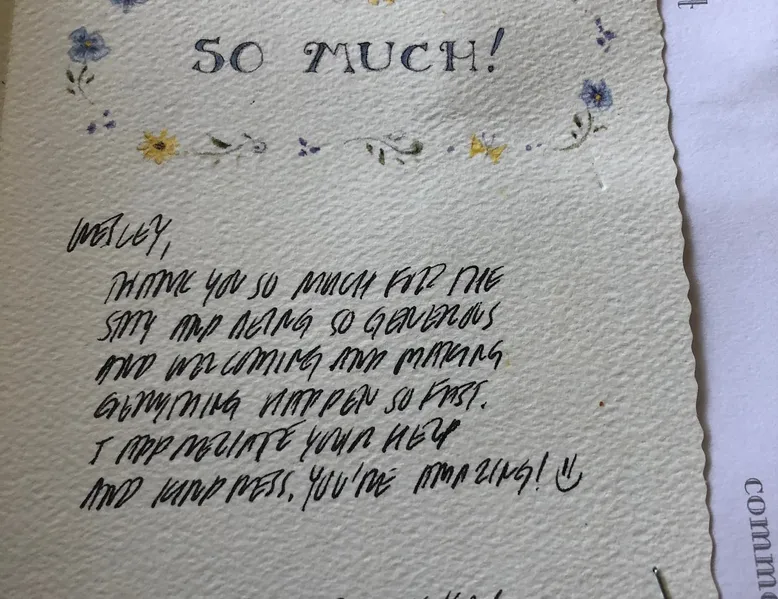 SO MUCH!
WESLEY,
THANK YOU SO MUCH FOR THE
STAY AND BEING SO GENEROUS
AND WELCOMING AND MAKING
EVERYTHING HAPPEN SO FAST.
I APPRECIATE YOUR HELP
AND KINDNESS. YOU'RE AMAZING! :)
comm